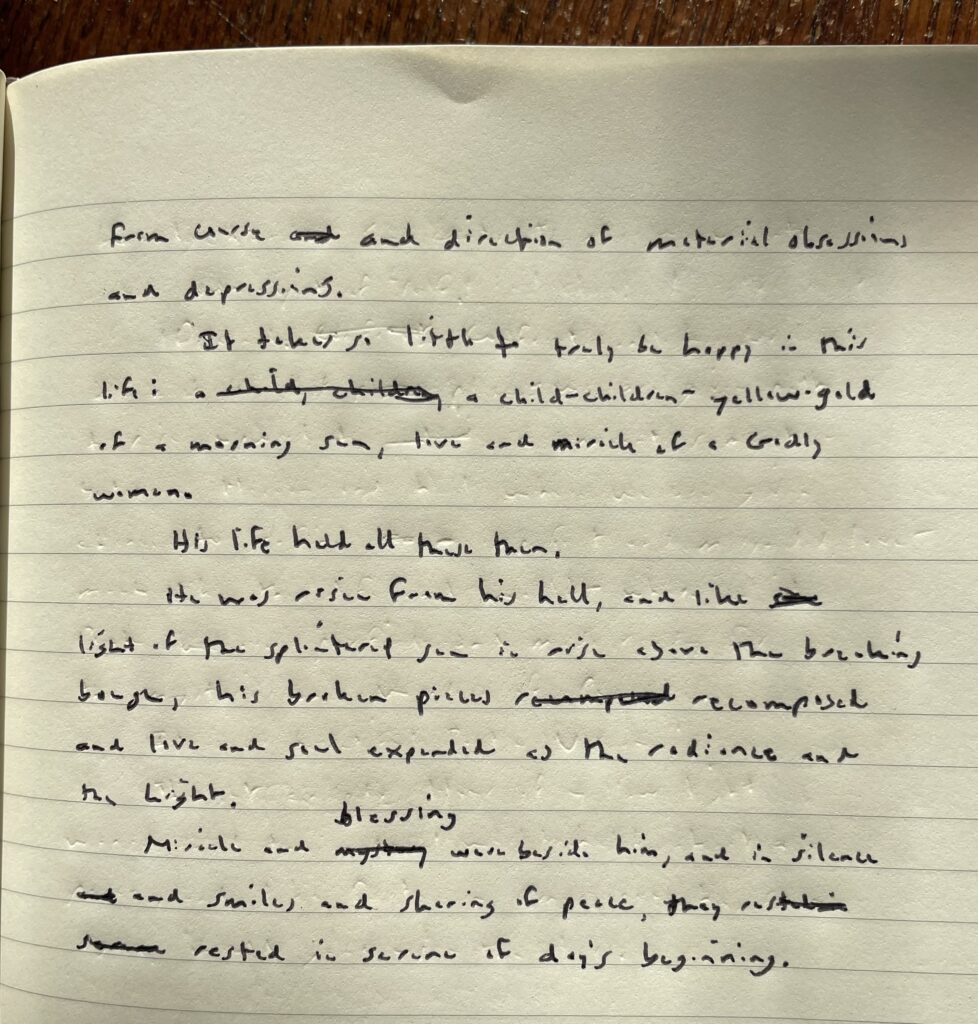 from course and and direction of material obsessions
and depressions.
It takes so little to truly be happy in this
life: a child, children, a child-children-yellow-gold
of a morning sun, love and miracle of a Godly
woman.
His life held all these then.
He was risen from his hell, and like
light of the splintered sun in rise above the breaking
bough, his broken pieces recomposed recomposed
and love and soul expanded as the radiance and
the light.
blessing
Miracle and mystery were beside him, and in silence
and and smiles and sharing of peace, they rested in
rested in serene of day's beginning.